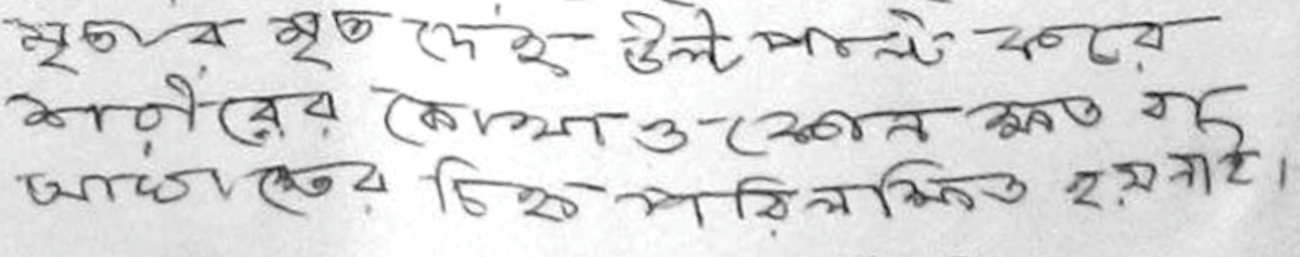 মৃতার মৃত দেহ উলট পালট করে
শরীরের কোথাও কোন ক্ষত বা
আঘাতের চিহ্ন পরিলক্ষিত হয় নাই।